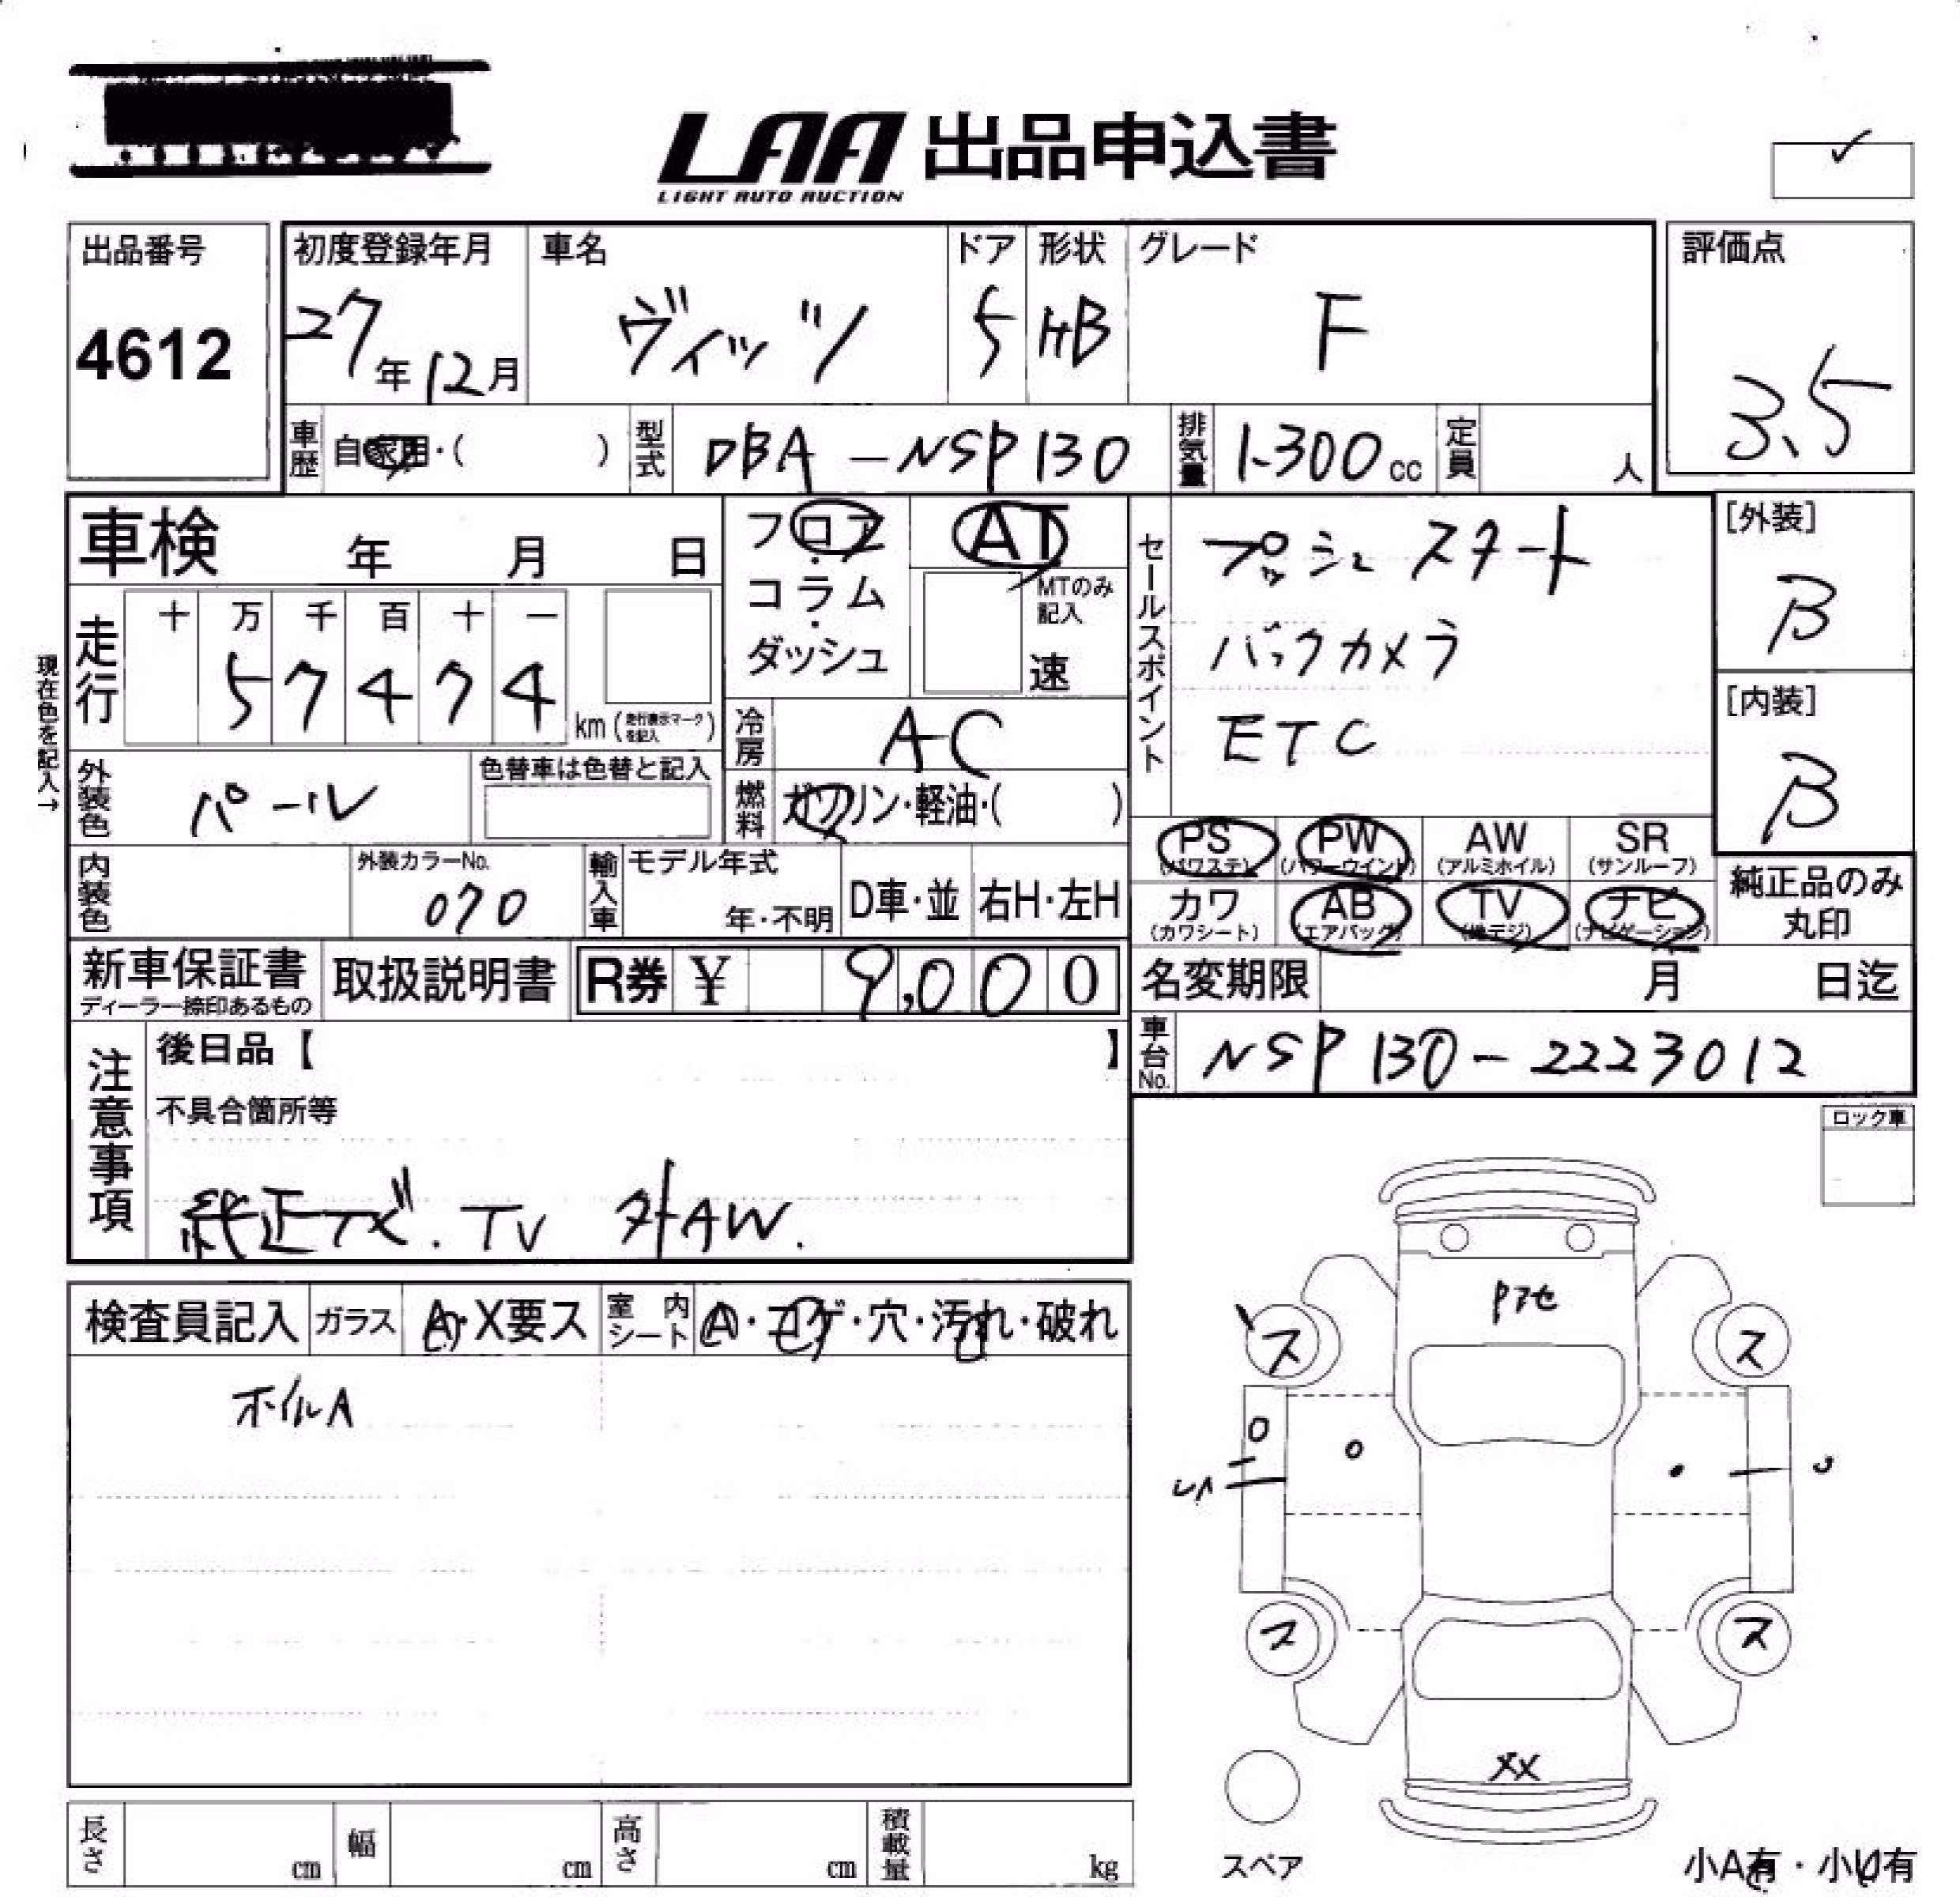 LAA 出品申込書
LIGHT AUTO AUCTION
出品番号
4612
初度登録年月
27年12月
車名
ヴィッツ
ドア
5
形状
HB
グレード
F
評価点
3.5
車歴 自家用・( )
型式 DBA-NSP130
排気量 1.300cc
定員 人
車検 年 月 日
フロア・コラム・ダッシュ
AT
MTのみ記入
速
セールスポイント
プッシュスタート
バックカメラ
ETC
[外装]
B
[内装]
B
現在色を記入→
走行
十 万 千 百 十 一
5 7 4 7 4 km (走行表示マークを記入)
冷房 AC
外装色 パール
色替車は色替と記入
燃料 ガソリン・軽油・( )
内装色
外装カラーNo.
070
輸入車
モデル年式
年・不明
D車・並
右H・左H
PS (パワステ)
PW (パワーウインド)
AW (アルミホイル)
SR (サンルーフ)
カワ (カワシート)
AB (エアバッグ)
TV (地デジ)
ナビ (ナビゲーション)
純正品のみ丸印
新車保証書
ディーラー捺印あるもの
取扱説明書
R券 ¥ 9,000
名変期限 月 日迄
車台No. NSP130-2223012
注意事項
後日品【 】
不具合箇所等
純正ナビ.TV 外AW.
ロック車
検査員記入
ガラス A・X要ス
室内シート A・コゲ・穴・汚れ・破れ
ホイルA
Pアセ
ス ス
ス ス
XX
スペア
小A有・小U有
長さ cm
幅 cm
高さ cm
積載量 kg